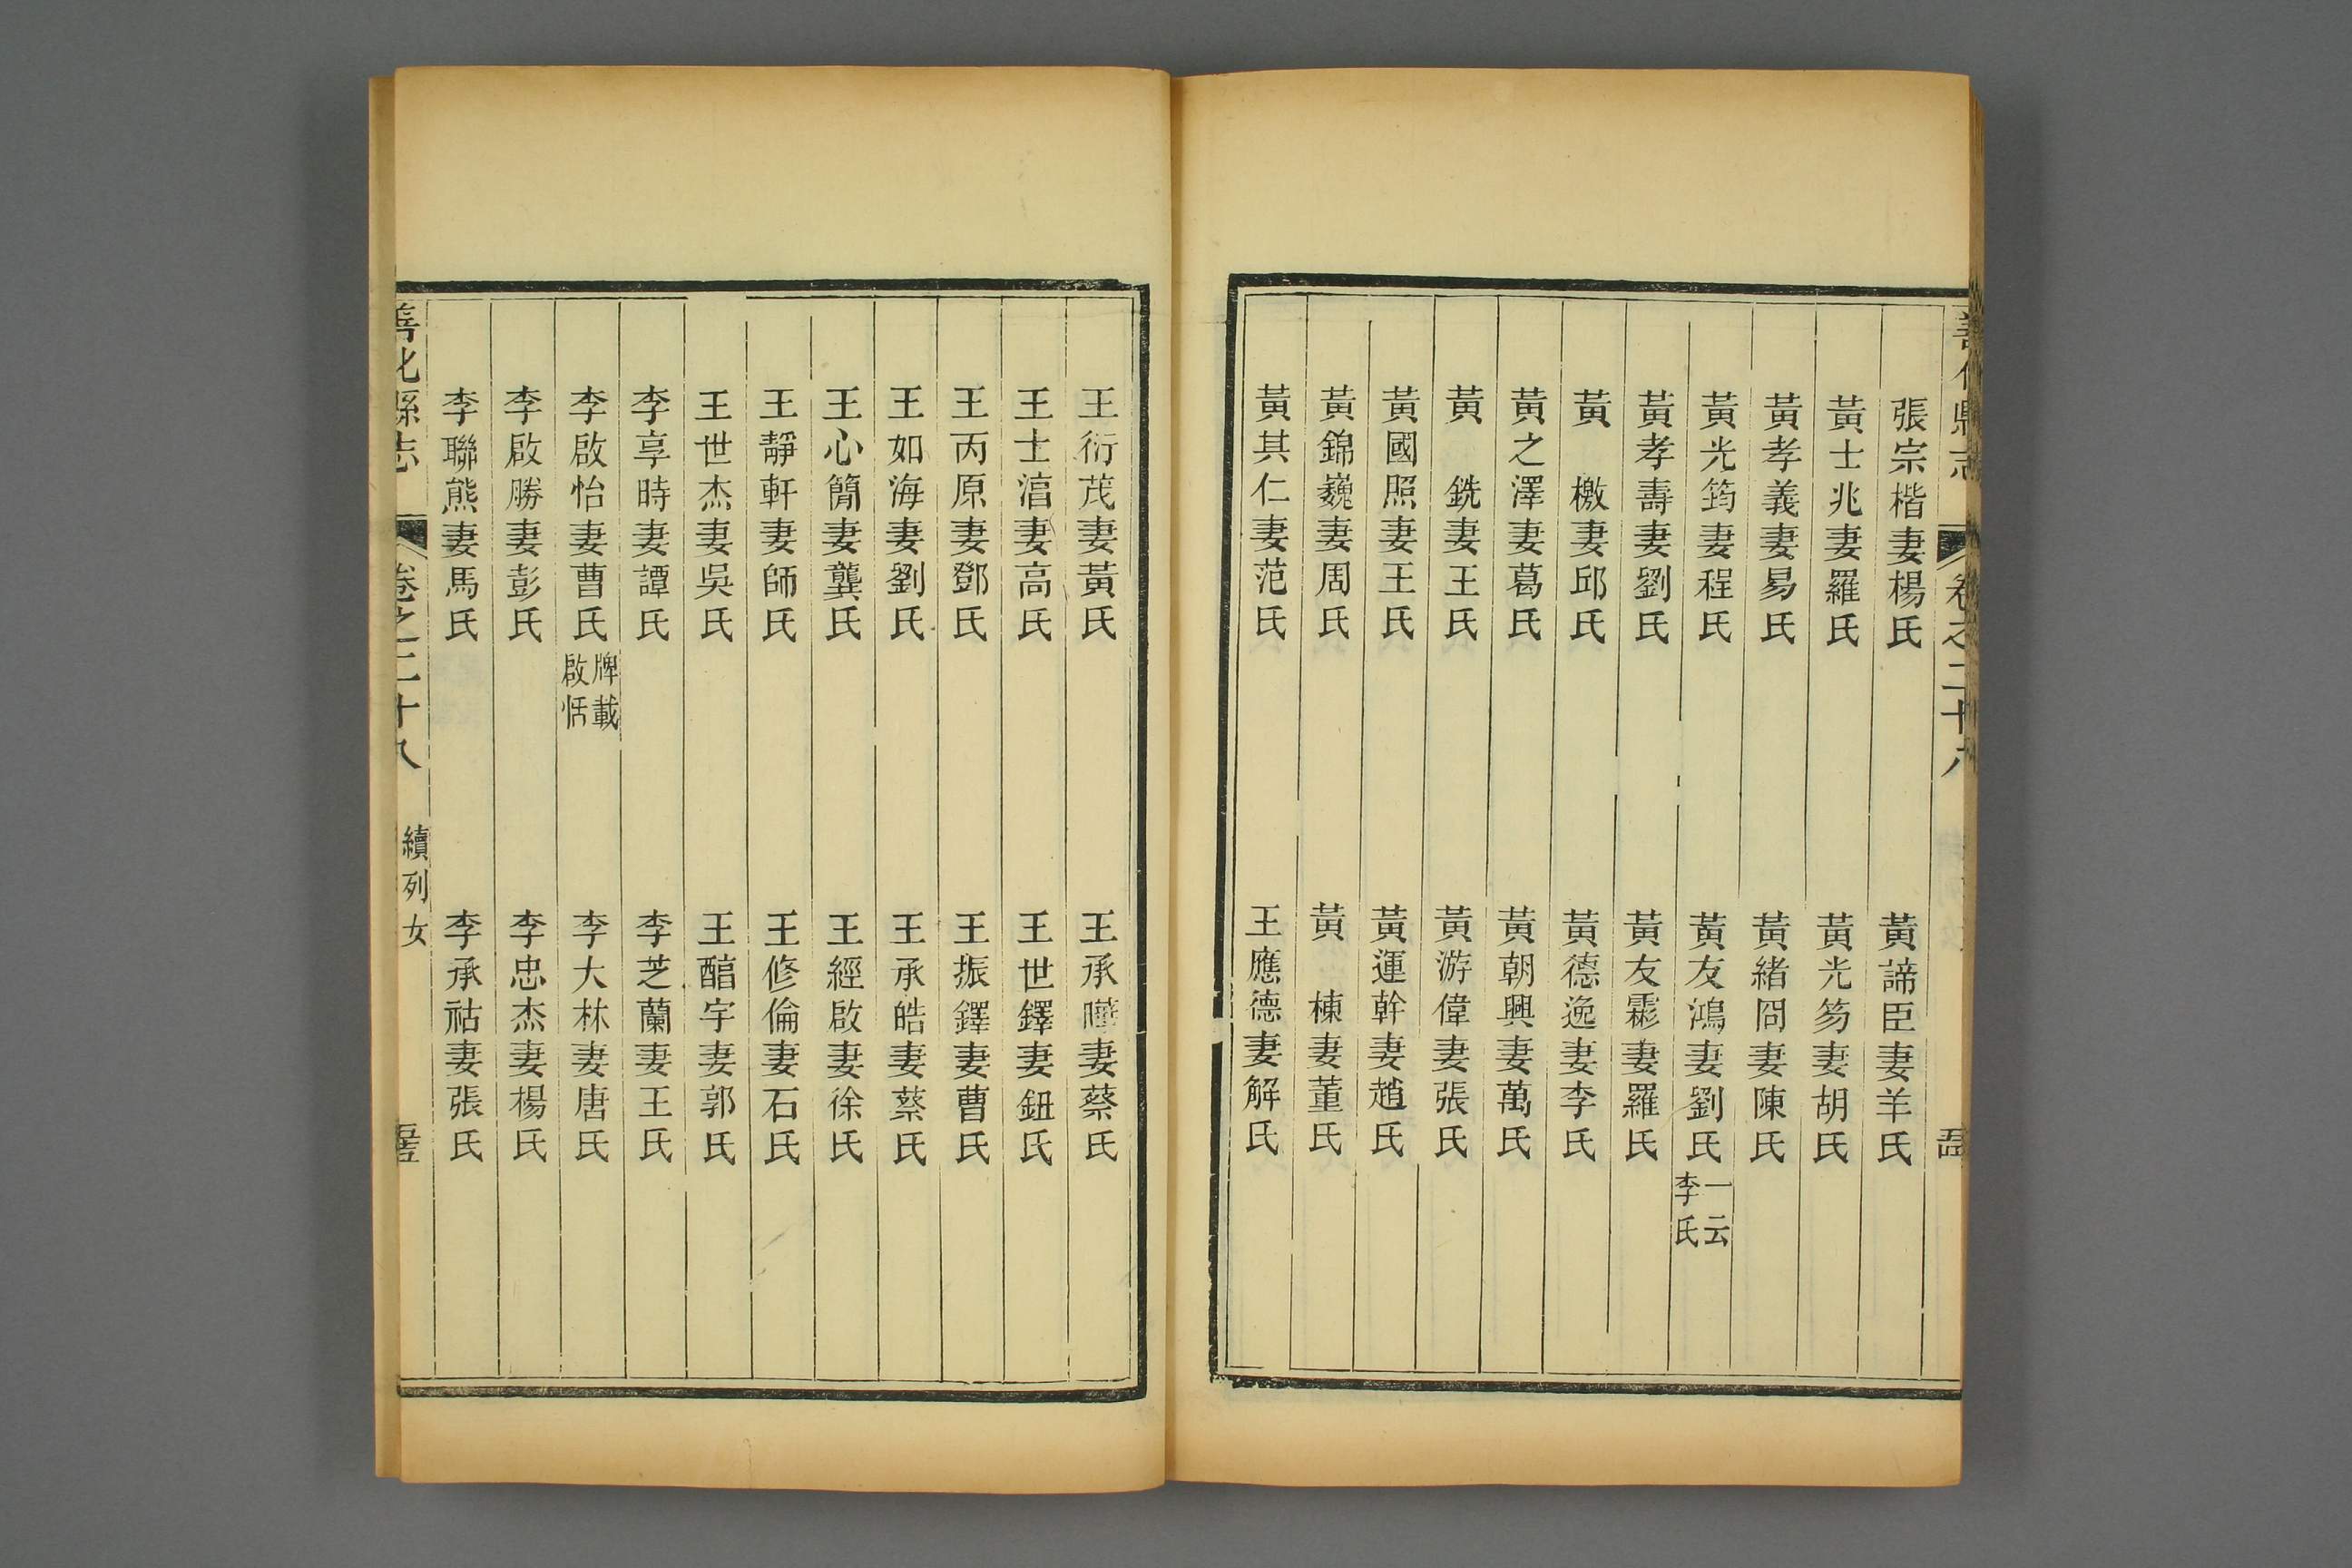 善化縣志
卷之二十八
張宗楷妻楊氏
黃諦臣妻羊氏
黃士兆妻羅氏
黃光笏妻胡氏
黃孝義妻易氏
黃緒冏妻陳氏
黃光筠妻程氏
黃友鴻妻劉氏一云李氏
黃孝壽妻劉氏
黃友霦妻羅氏
黃檄妻邱氏
黃德逸妻李氏
黃之澤妻葛氏
黃朝興妻萬氏
黃銑妻王氏
黃游偉妻張氏
黃國照妻王氏
黃運幹妻趙氏
黃錦巍妻周氏
黃棟妻董氏
黃其仁妻范氏
王應德妻解氏
王衍茂妻黃氏
王承妻蔡氏
王士涫妻高氏
王世鐸妻鈕氏
王丙原妻鄧氏
王振鐸妻曹氏
王如海妻劉氏
王承皓妻蔡氏
王心簡妻龔氏
王經啟妻徐氏
王靜軒妻師氏
王修倫妻石氏
王世杰妻吳氏
王醕宇妻郭氏
李享時妻譚氏
李芝蘭妻王氏
李啟怡妻曹氏牌載啟恬
李大林妻唐氏
李啟勝妻彭氏
李忠杰妻楊氏
李聯熊妻馬氏
李承祜妻張氏
善化縣志
卷之二十八
續列女